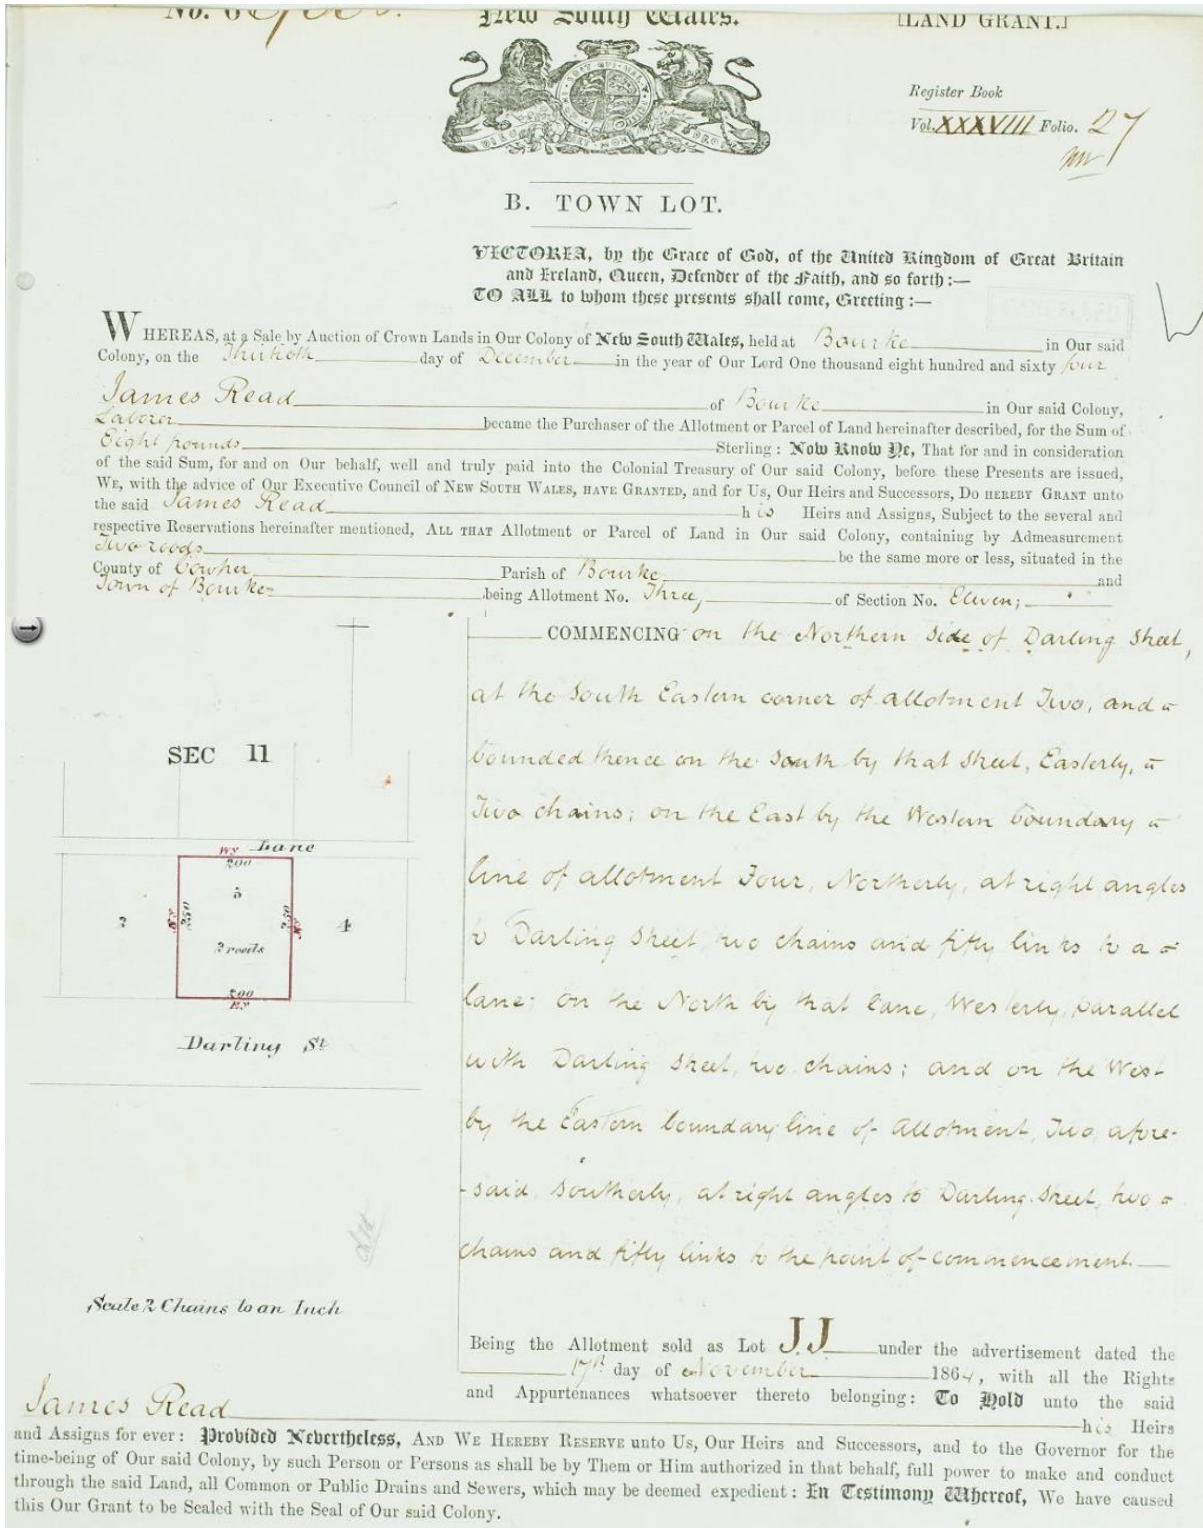 New South Wales.
[LAND GRANT.]
Register Book
Vol. XXXVIII Folio. 27
B. TOWN LOT.
VICTORIA, by the Grace of God, of the United Kingdom of Great Britain
and Ireland, Queen, Defender of the Faith, and so forth:—
TO ALL to whom these presents shall come, Greeting:—
WHEREAS, at a Sale by Auction of Crown Lands in Our Colony of New South Wales, held at Bourke in Our said
Colony, on the Thirtieth day of December in the year of Our Lord One thousand eight hundred and sixty four
James Read of Bourke in Our said Colony,
Laborer became the Purchaser of the Allotment or Parcel of Land hereinafter described, for the Sum of
Eight pounds Sterling: Now Know Ye, That for and in consideration
of the said Sum, for and on Our behalf, well and truly paid into the Colonial Treasury of Our said Colony, before these Presents are issued,
WE, with the advice of Our Executive Council of NEW SOUTH WALES, HAVE GRANTED, and for Us, Our Heirs and Successors, DO HEREBY GRANT unto
the said James Read his Heirs and Assigns, Subject to the several and
respective Reservations hereinafter mentioned, ALL THAT Allotment or Parcel of Land in Our said Colony, containing by Admeasurement
Two roods be the same more or less, situated in the
County of Cowper Parish of Bourke and
Town of Bourke being Allotment No. Three, of Section No. Eleven;
COMMENCING on the Northern side of Darling Street,
at the South Eastern corner of allotment Two, and
bounded thence on the South by that Street, Easterly,
Two chains; on the East by the Western boundary
line of allotment Four, Northerly, at right angles
to Darling Street, two chains and fifty links to a
lane; on the North by that lane, Westerly, parallel
with Darling Street, two chains; and on the West
by the Eastern boundary line of Allotment, Two, afore-
-said, Southerly, at right angles to Darling Street, two
chains and fifty links to the point of commencement.
SEC 11
Lane
Wy
200
3
2
250
250
4
2 roods
200
Ey
Darling St
Scale 2 Chains to an Inch
Being the Allotment sold as Lot JJ under the advertisement dated the
17th day of November 1864, with all the Rights
and Appurtenances whatsoever thereto belonging: To Hold unto the said
James Read his Heirs
and Assigns for ever: Provided Nevertheless, AND WE HEREBY RESERVE unto Us, Our Heirs and Successors, and to the Governor for the
time-being of Our said Colony, by such Person or Persons as shall be by Them or Him authorized in that behalf, full power to make and conduct
through the said Land, all Common or Public Drains and Sewers, which may be deemed expedient: In Testimony Whereof, We have caused
this Our Grant to be Sealed with the Seal of Our said Colony.